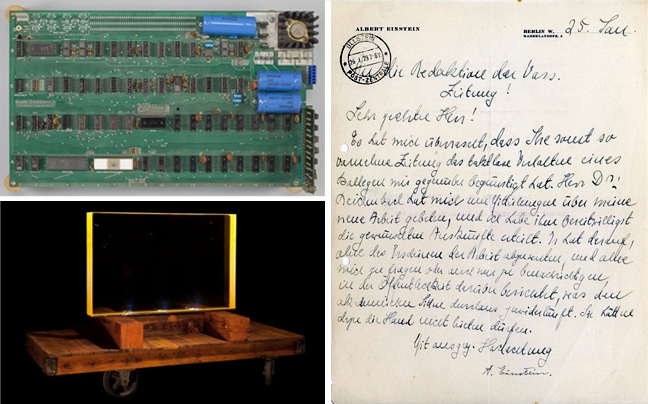 ALBERT EINSTEIN
BERLIN W.
HABERLANDSTR. 5
25. Jan.
ULLSTEIN
POST-ZENTRALE
die Redaktion der Voss.
Zeitung!
Sehr geehrter Herr!
Es hat mich überrascht, dass Ihre sonst so
vornehme Zeitung das taktlose Verhalten eines
Kollegen mir gegenüber begünstigt hat. Herr Dr.
Reichenbach hat mich um Mitteilungen über meine
neue Arbeit gebeten, und ich habe ihm bereitwilligst
die gewünschten Auskünfte erteilt. Er hat darauf,
ohne das Erscheinen der Arbeit abzuwarten, und ohne
mich zu fragen oder auch nur zu benachrichtigen,
in der Öffentlichkeit darüber berichtet, was den
akademischen Sitten durchaus zuwiderläuft. Sie hätten
die Hand nicht bieten dürfen.
Mit ausgez. Hochachtung
A. Einstein.